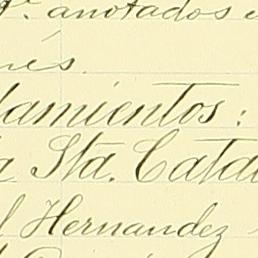 anotados
és
lamientos:
a Sta. Catal
l Hernandez